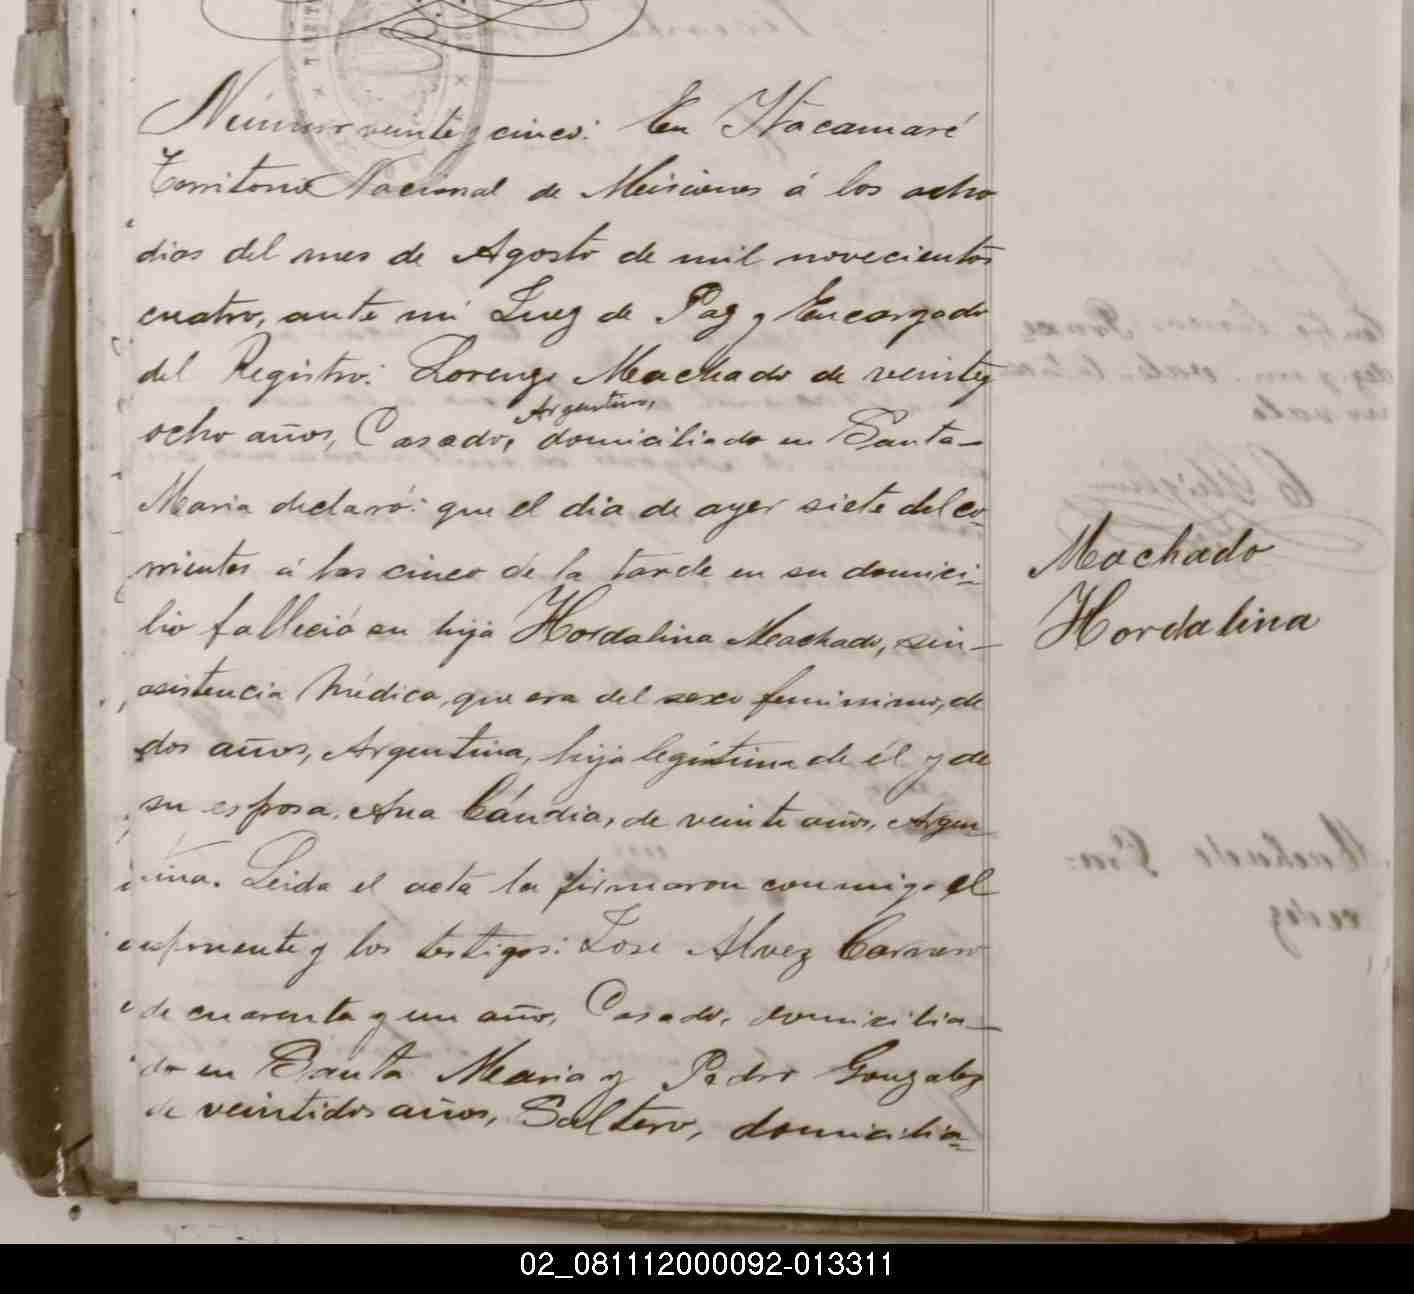 Número veinte y cinco: En Itacamaré
Territorio Nacional de Misiones á los ocho
dias del mes de Agosto de mil novecientos
cuatro, ante mi Juez de Paz y Encargado
del Registro: Lorenzo Machado de veinte y
Argentino,
ocho años, Casado, domiciliado en Santa
Maria declaró: que el dia de ayer siete del co-
rrientes á las cinco de la tarde en su domici-
lio falleció su hija Hordalina Machado, sin
asistencia médica, que era del sexo feminimo, de
dos años, Argentina, hija legítima de él y de
su esposa, Ana Cándia, de veinte años, Argen
tina. Leida el acta la firmaron conmigo el
esponente y los testigos: Jose Alvez Carnero
de cuarenta y un año, Casado, domicilia-
do en Santa Maria y Pedro Gonzalez
de veintidos años, Soltero, domicilia-
Machado
Hordalina
02_081112000092-013311